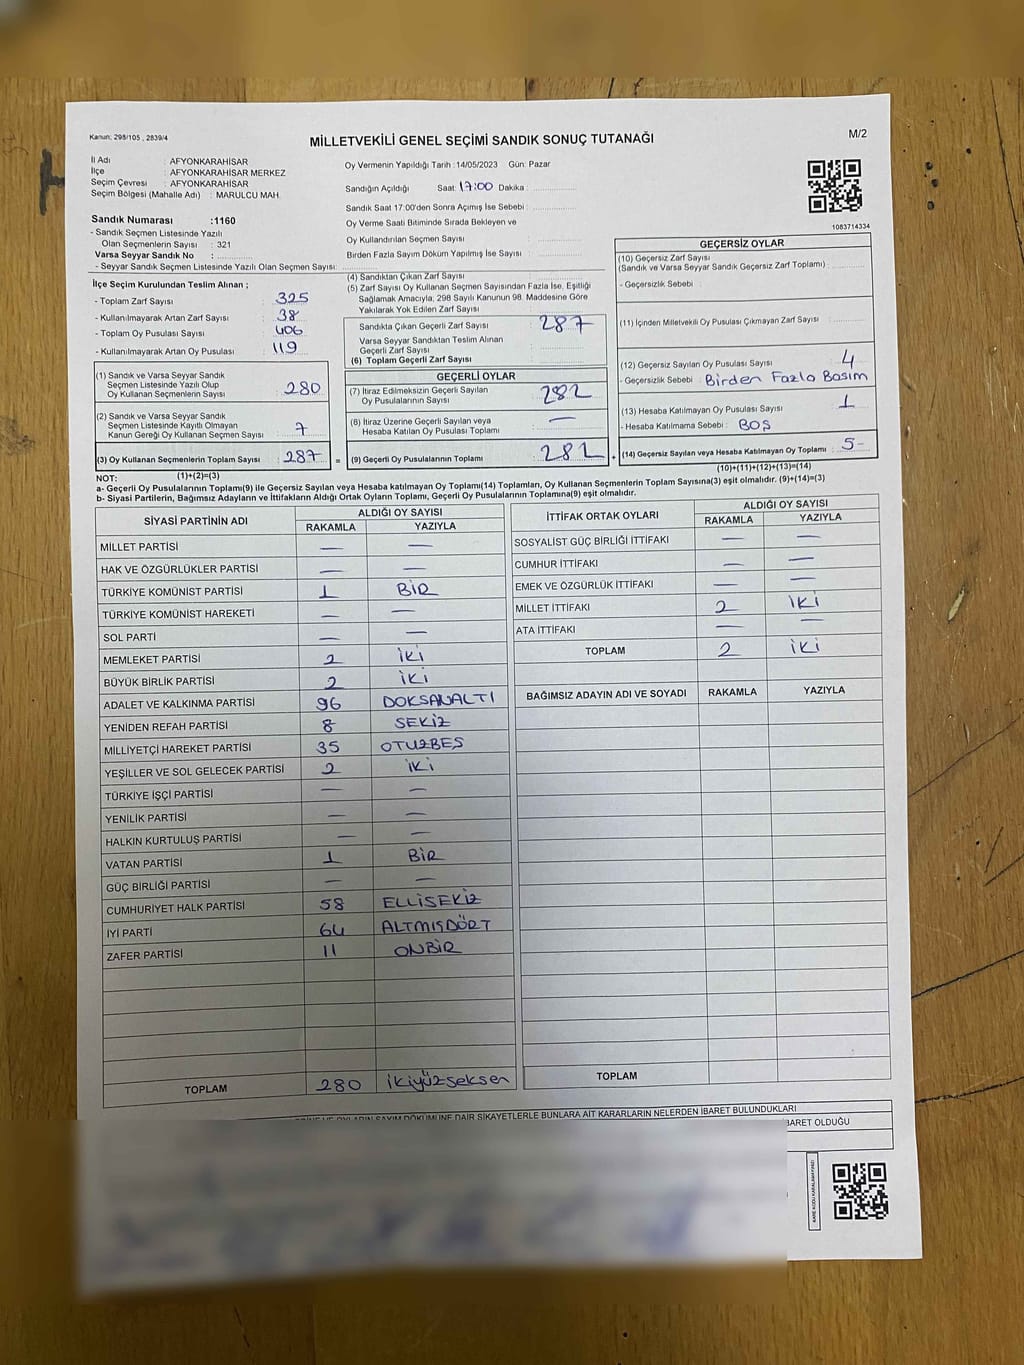 Kanun: 298/105 , 2839/4
MİLLETVEKİLİ GENEL SEÇİMİ SANDIK SONUÇ TUTANAĞI
M/2
İl Adı : AFYONKARAHİSAR
İlçe : AFYONKARAHİSAR MERKEZ
Seçim Çevresi : AFYONKARAHİSAR
Seçim Bölgesi (Mahalle Adı) : MARULCU MAH.
Sandık Numarası :1160
- Sandık Seçmen Listesinde Yazılı
Olan Seçmenlerin Sayısı : 321
Varsa Seyyar Sandık No :
- Seyyar Sandık Seçmen Listesinde Yazılı Olan Seçmen Sayısı:
Oy Vermenin Yapıldığı Tarih :14/05/2023 Gün: Pazar
Sandığın Açıldığı Saat: 17:00 Dakika :
Sandık Saat 17:00'den Sonra Açımış İse Sebebi :
Oy Verme Saati Bitiminde Sırada Bekleyen ve
Oy Kullandırılan Seçmen Sayısı :
Birden Fazla Sayım Döküm Yapılmış İse Sayısı :
1083714334
İlçe Seçim Kurulundan Teslim Alınan ;
- Toplam Zarf Sayısı : 325
- Kullanılmayarak Artan Zarf Sayısı : 38
- Toplam Oy Pusulası Sayısı : 406
- Kullanılmayarak Artan Oy Pusulası : 119
(1) Sandık ve Varsa Seyyar Sandık
Seçmen Listesinde Yazılı Olup
Oy Kullanan Seçmenlerin Sayısı : 280
(2) Sandık ve Varsa Seyyar Sandık
Seçmen Listesinde Kayıtlı Olmayan
Kanun Gereği Oy Kullanan Seçmen Sayısı : 7
(3) Oy Kullanan Seçmenlerin Toplam Sayısı : 287 =
(1)+(2)=(3)
(4) Sandıktan Çıkan Zarf Sayısı :
(5) Zarf Sayısı Oy Kullanan Seçmen Sayısından Fazla İse, Eşitliği
Sağlamak Amacıyla; 298 Sayılı Kanunun 98. Maddesine Göre
Yakılarak Yok Edilen Zarf Sayısı :
Sandıkta Çıkan Geçerli Zarf Sayısı : 287
Varsa Seyyar Sandıktan Teslim Alınan
Geçerli Zarf Sayısı :
(6) Toplam Geçerli Zarf Sayısı :
GEÇERLİ OYLAR
(7) İtiraz Edilmeksizin Geçerli Sayılan
Oy Pusulalarının Sayısı : 282
(8) İtiraz Üzerine Geçerli Sayılan veya
Hesaba Katılan Oy Pusulası Toplamı : —
(9) Geçerli Oy Pusulalarının Toplamı : 282
GEÇERSİZ OYLAR
(10) Geçersiz Zarf Sayısı
(Sandık ve Varsa Seyyar Sandık Geçersiz Zarf Toplamı) :
- Geçersizlik Sebebi :
(11) İçinden Milletvekili Oy Pusulası Çıkmayan Zarf Sayısı :
(12) Geçersiz Sayılan Oy Pusulası Sayısı : 4
- Geçersizlik Sebebi : Birden Fazla Basım
(13) Hesaba Katılmayan Oy Pusulası Sayısı : 1
- Hesaba Katılmama Sebebi : BOŞ
(14) Geçersiz Sayılan veya Hesaba Katılmayan Oy Toplamı : 5
(10)+(11)+(12)+(13)=(14)
NOT:
a- Geçerli Oy Pusulalarının Toplamı(9) ile Geçersiz Sayılan veya Hesaba Katılmayan Oy Toplamı(14) Toplamları, Oy Kullanan Seçmenlerin Toplam Sayısına(3) eşit olmalıdır. (9)+(14)=(3)
b- Siyasi Partilerin, Bağımsız Adayların ve İttifakların Aldığı Ortak Oyların Toplamı, Geçerli Oy Pusulalarının Toplamına(9) eşit olmalıdır.
SİYASİ PARTİNİN ADI ALDIĞI OY SAYISI
RAKAMLA YAZIYLA
MİLLET PARTİSİ — —
HAK VE ÖZGÜRLÜKLER PARTİSİ — —
TÜRKİYE KOMÜNİST PARTİSİ 1 BİR
TÜRKİYE KOMÜNİST HAREKETİ — —
SOL PARTİ — —
MEMLEKET PARTİSİ 2 İKİ
BÜYÜK BİRLİK PARTİSİ 2 İKİ
ADALET VE KALKINMA PARTİSİ 96 DOKSANALTI
YENİDEN REFAH PARTİSİ 8 SEKİZ
MİLLİYETÇİ HAREKET PARTİSİ 35 OTUZBEŞ
YEŞİLLER VE SOL GELECEK PARTİSİ 2 İKİ
TÜRKİYE İŞÇİ PARTİSİ — —
YENİLİK PARTİSİ — —
HALKIN KURTULUŞ PARTİSİ — —
VATAN PARTİSİ 1 BİR
GÜÇ BİRLİĞİ PARTİSİ — —
CUMHURİYET HALK PARTİSİ 58 ELLİSEKİZ
İYİ PARTİ 64 ALTMIŞDÖRT
ZAFER PARTİSİ 11 ONBİR
TOPLAM 280 İkiyüzseksen
İTTİFAK ORTAK OYLARI ALDIĞI OY SAYISI
RAKAMLA YAZIYLA
SOSYALİST GÜÇ BİRLİĞİ İTTİFAKI — —
CUMHUR İTTİFAKI — —
EMEK VE ÖZGÜRLÜK İTTİFAKI — —
MİLLET İTTİFAKI 2 İKİ
ATA İTTİFAKI — —
TOPLAM 2 İKİ
BAĞIMSIZ ADAYIN ADI VE SOYADI RAKAMLA YAZIYLA
TOPLAM
OYLARIN SAYIM DÖKÜMÜNE DAİR ŞİKAYETLERLE BUNLARA AİT KARARLARIN NELERDEN İBARET BULUNDUKLARI
İBARET OLDUĞU